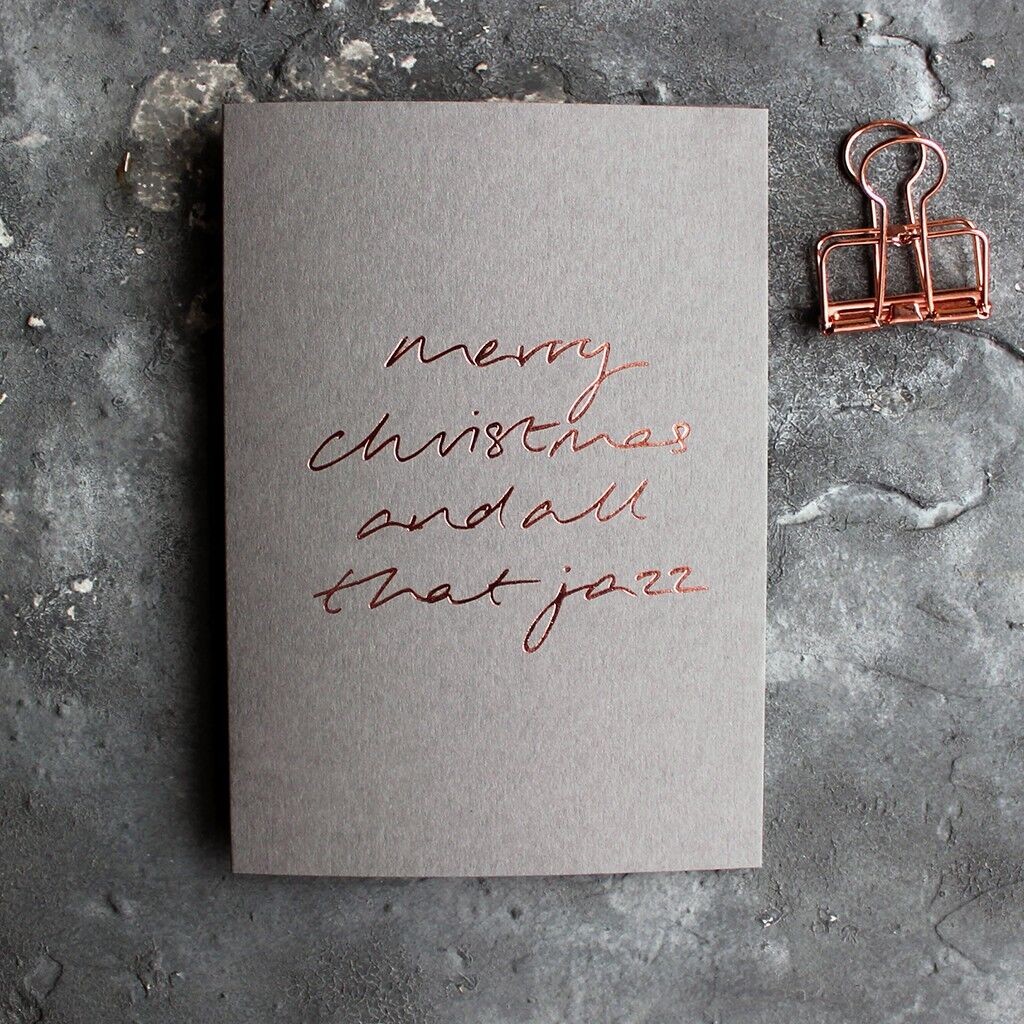 merry
christmas
and all
that jazz